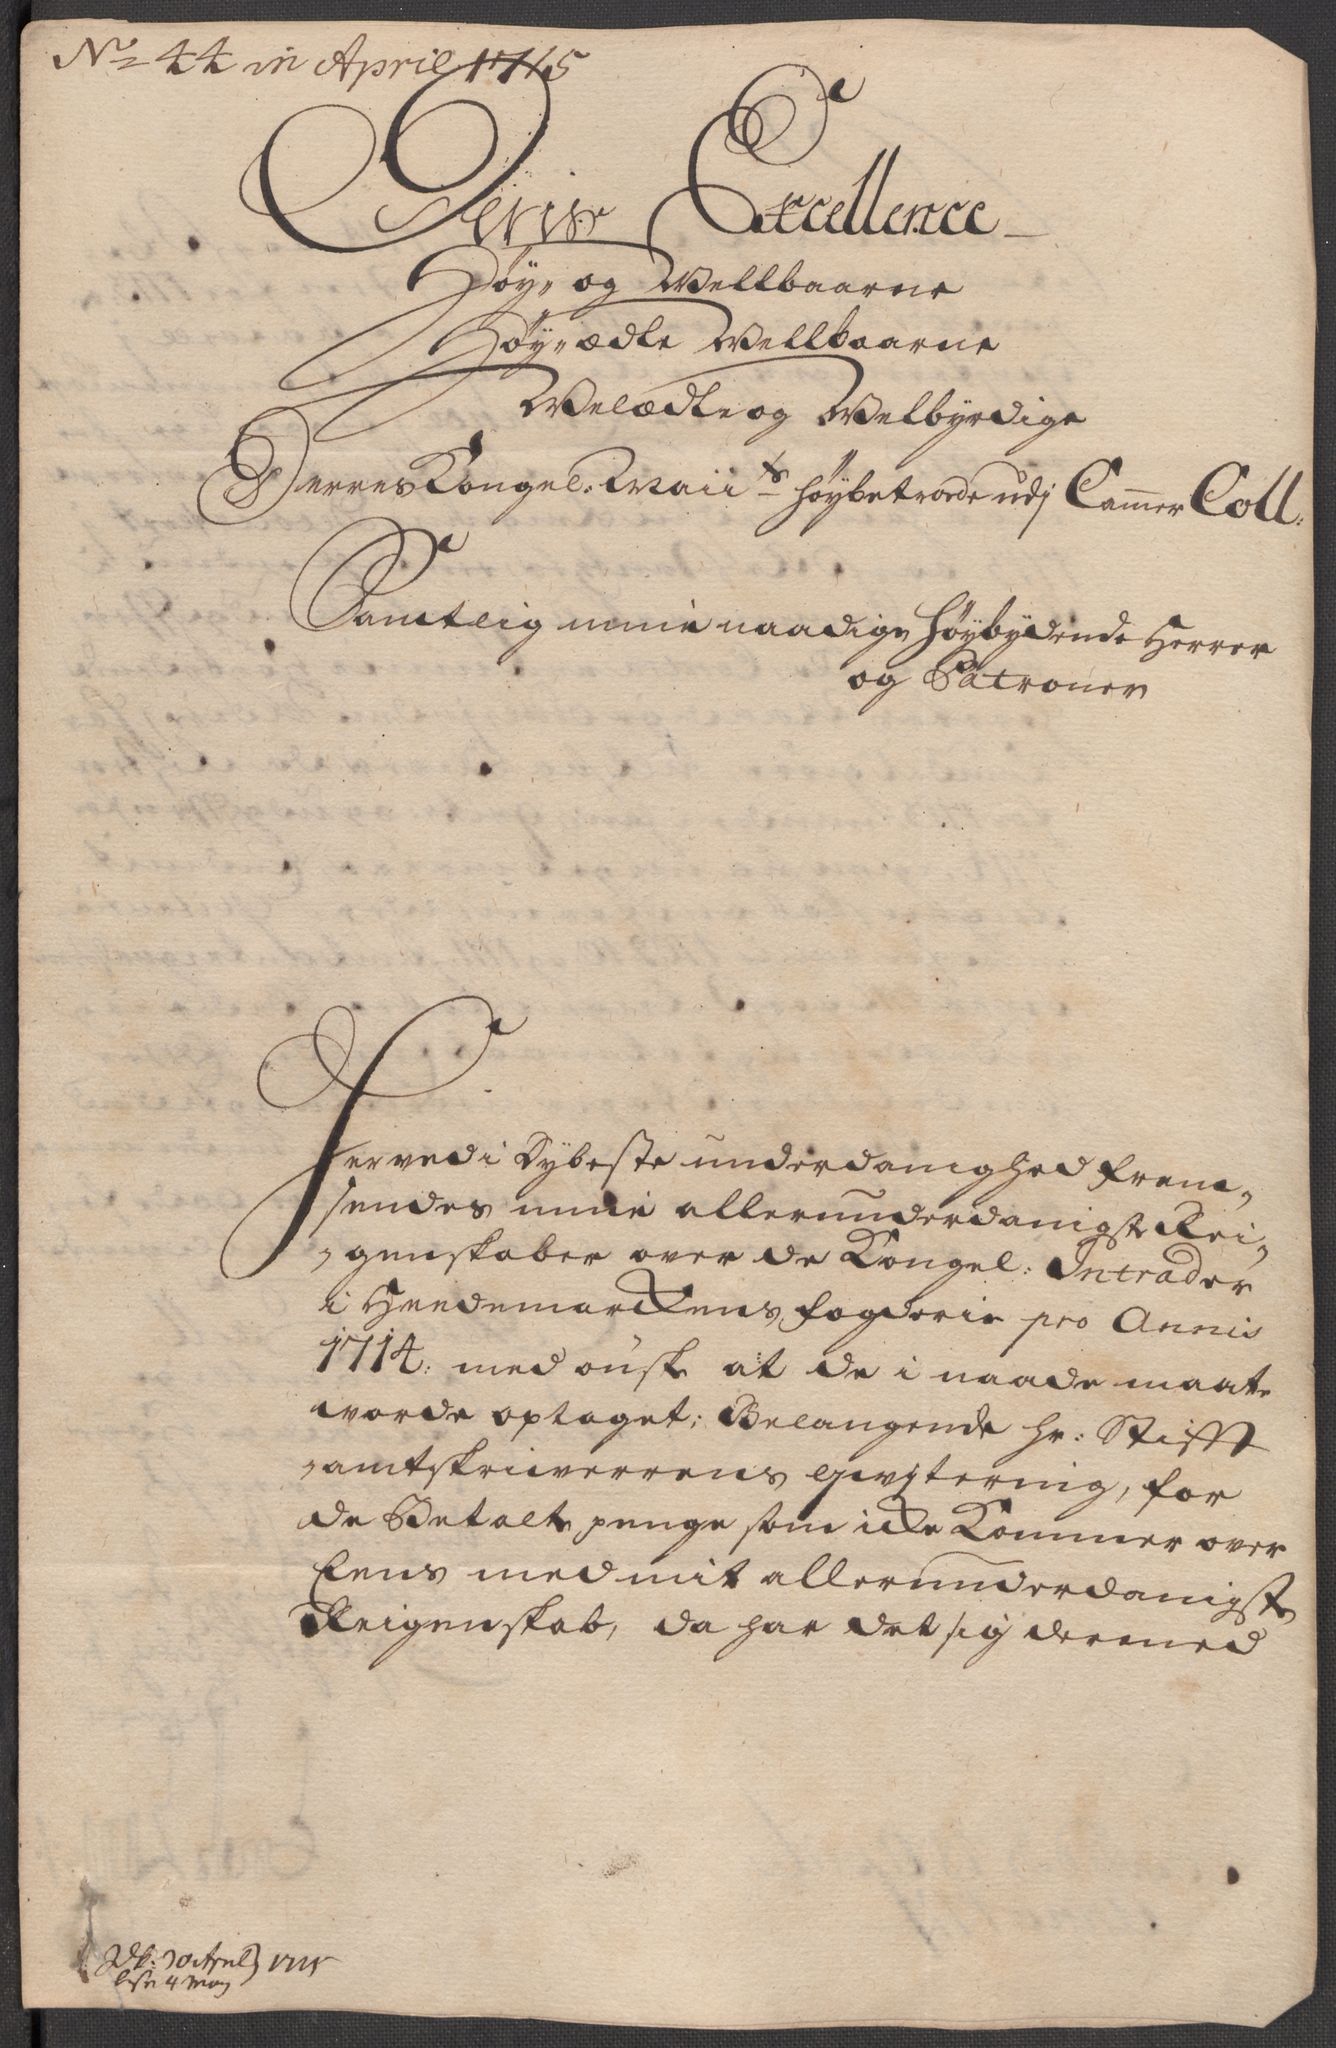 No 44 in April 1715
Deris Excellence
Høy- og Wellbaarne
Høy-ædle Wellbaarne
Welædle og Welbyrdige
Derres Kongel: Maiits høybetroede udj Cammer Coll:
Samtlig mine naadige høybydende Herrer
og Patroner
Herved i dybeste underdanighed frem-
sendes mine allerunderdanigste Rei-
-genskaber over de Kongel: Intrader
i Heedemarckens fogderie pro Annis
1714: med ønske at de i naade maate
worde optaget; Belangende hr: Stifft
-amtskriwerrens qwitering, for
de Betalte penge som icke Kommer over
Eens med mit allerunderdanigste
Reigenskab, da har det sig dermed
30 April 1715
4 May